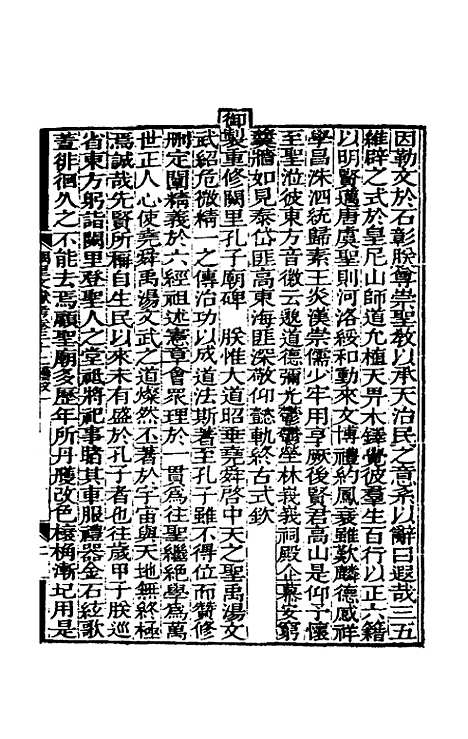 因勒文於石彰朕尊崇聖敎以承天治民之意系以辭曰遐哉三五
維辟之式於皇尼山師道允植天畀木鐸覺彼羣生百行以正六籍
以明賢躋唐虞聖則河洛綏和動來文博禮約鳳衰雖歎麟德感祥
學昌洙泗統歸素王炎漢崇儒少牢用享厥後賢君高山是仰予懷
至聖涖彼東方音徽云邈道德彌光鬱鬱塋林峩峩祠殿企慕安窮
羹牆如見泰岱匪高東海匪深敬仰懿軌終古式欽
御製重修闕里孔子廟碑 朕惟大道昭垂堯舜啓中天之聖禹湯文
武紹危微精 之傳治功以成道法斯著至孔子雖不得位而贊修
刪定闡精義於六經祖述憲章會衆理於一貫爲往聖繼絕學爲萬
世正人心使堯舜禹湯文武之道燦然丕著於宇宙與天地無終極
焉誠哉先賢所稱自生民以來未有盛於孔子者也往歲甲子朕巡
省東方躬詣闕里登聖人之堂祗將祀事睹其車服禮器金石絃歌
蓋徘徊久之不能去焉顧聖廟多歷年所丹雘改色榱桷漸圮用是